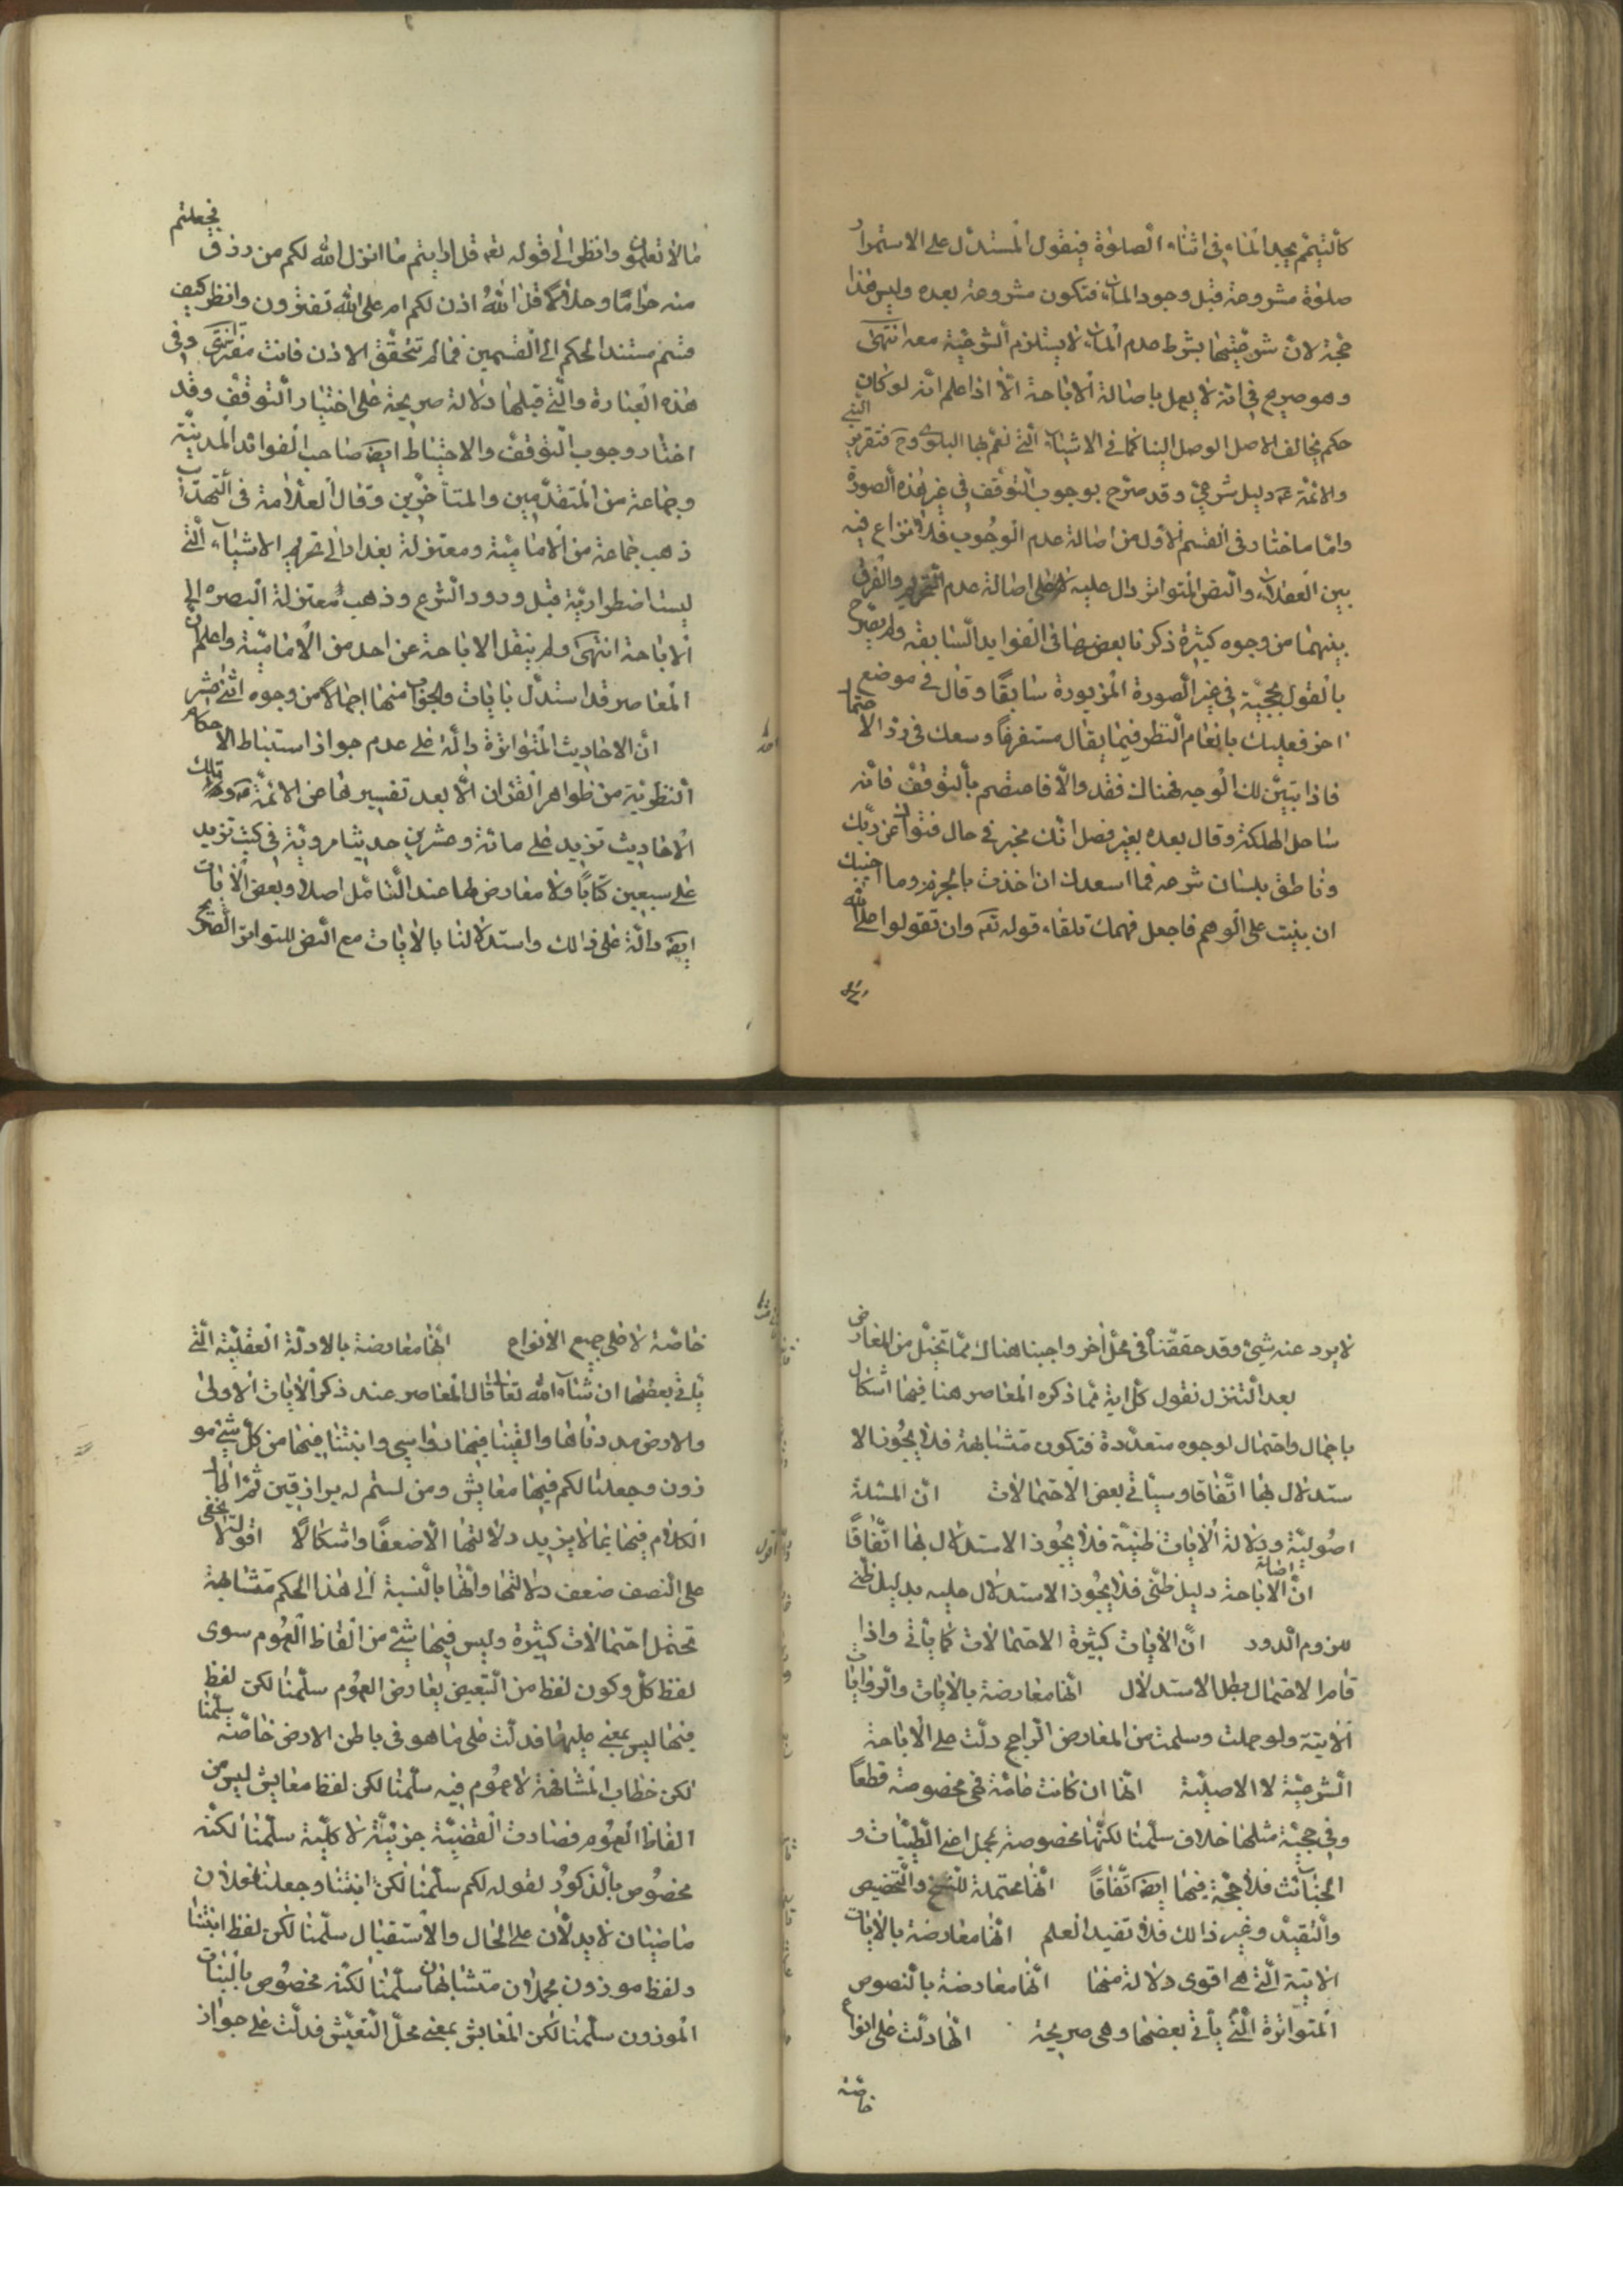 كالتيمم يجد الماء في اثناء الصلوة فيقول المستدل على الاستمرار
صلوة مشروعة قبل وجود الماء فتكون مشروعة بعده وليس هذا
حجة لان شرعيتها بشرط عدم الماء لا يستلزم الشرعية معه انتهى
وهو صريح في انه لا يعمل باصالة الاباحة الا اذا علم انه لو كان
حكم مخالف للاصل لوصل الينا كما في الاشياء التي تعم بها البلوى وح فتقرير النبي
والائمة ع دليل شرعي وقد صرح بوجوب التوقف في غير هذه الصورة
واما ما اختار في القسم الاول من اصالة عدم الوجوب فلا نزاع فيه
بين العقلاء والنص المتواتر دال عليه لا على اصالة عدم التحريم والفرق
بينهما من وجوه كثيرة ذكرنا بعضها في الفوايد السابقة ولم يصرح
بالقول بحجية في غير الصورة المزبورة سابقا وقال في موضع
اخر فعليك بانعام النظر فيما يقال مستفرغا وسعك في رد الاحتمال
فاذا تبين لك الوجه فهناك فقد والا فاعتصم بالتوقف فانه
ساحل الهلكة وقال بعده بغير فصل انك مخبر في حال فتواك عن ربك
وناطق بلسان شرعه فما اسعدك ان اخذت بالجزم وما اخيبك
ان بنيت على الوهم فاجعل فهمك تلقاء قوله تع وان تقولوا على الله
ما لا تعلمون وانظر الى قوله تع قل ارايتم ما انزل الله لكم من رزق فجعلتم
منه حراما وحلالا قل الله اذن لكم ام على الله تفترون وانظر كيف
قسم مستند الحكم الى القسمين فما لم تتحقق الاذن فانت مفتر انتهى وفي
هذه العبارة والتي قبلها دلالة صريحة على اختيار التوقف وقد
اختار وجوب التوقف والاحتياط ايضا صاحب الفوائد المدنية
وجماعة من المتقدمين والمتأخرين وقال العلامة في التهذيب
ذهب جماعة من الامامية ومعتزلة بغداد الى تحريم الاشياء التي
ليست اضطرارية قبل ورود الشرع وذهب معتزلة البصره الى
الاباحة انتهى ولم ينقل الاباحة عن احد من الامامية واعلم ان
المعاصر قد استدل بايات والجواب عنها اجمالا من وجوه اثني عشر
احدها ان الاحاديث المتواترة دالة على عدم جواز استنباط الاحكام
النظرية من ظواهر القران الا بعد تفسيرها عن الائمة ع وتلك
الاحاديث تزيد على مائة وعشرين حديثا مروية في كتب تزيد
على سبعين كتابا ولا معارض لها عند التأمل اصلا وبعض الايات
ايضا دالة على ذالك واستدلالنا بالايات مع النص المتواتر الصريح
لا يرد عنه شئ وقد حققناه في محل اخر واجبنا هناك مما تخيل من المعارض
بعد التنزل نقول كل اية مما ذكره المعاصر هنا فيها اشكال
باجمال واحتمال لوجوه متعددة فتكون متشابهة فلا يجوز الا
ستدلال بها اتفاقا وسيأتي بعض الاحتمالات ان المسئلة
اصولية ودلالة الايات ظنية فلا يجوز الاستدلال بها اتفاقا
ان اصالة الاباحة دليل ظني فلا يجوز الاستدلال عليه بدليل ظني
للزوم الدور ان الايات كثيرة الاحتمالات كما يأتي واذا
قام الاحتمال بطل الاستدلال انها معارضة بالايات والروايات
الاتية ولو حملت وسلمت من المعارض الراجح دلت على الاباحة
الشرعية لا الاصلية انها ان كانت عامة فهي مخصوصة قطعا
وفي حجية مثلها خلاف سلمنا لكنها مخصوصة بمجمل اعني الطيبات و
الخبائث فلا حجة فيها ايضا اتفاقا انها محتملة للنسخ والتخصيص
والتقييد وغير ذالك فلا تفيد العلم انها معارضة بالايات
الاتية التي هي اقوى دلالة منها انها معارضة بالنصوص
المتواترة التي يأتي بعضها وهي صريحة انها دلت على انواع
خاصة
خاصة لا على جميع الانواع انها معارضة بالادلة العقلية التي
يأتي بعضها ان شاء الله تعالى قال المعاصر عند ذكر الايات الاولى
والارض مددناها والقينا فيها رواسي وانبتنا فيها من كل شئ مو
زون وجعلنا لكم فيها معايش ومن لستم له برازقين ثم اطال
الكلام فيها بما لا يزيد دلالتها الا ضعفا واشكالا اقول لا يخفى
على المنصف ضعف دلالتها وانها بالنسبة الى هذا الحكم متشابهة
تحتمل احتمالات كثيرة وليس فيها شئ من الفاظ العموم سوى
لفظ كل وكون لفظ من التبعيض يعارض العموم سلمنا لكن لفظ
فيها ليس بمعنى عليها فدلت على ما هو في باطن الارض خاصة سلمنا
لكن خطاب المشافهة لا عموم فيه سلمنا لكن لفظ معايش ليس من
الفاظ العموم فصارت القضية جزئية لا كلية سلمنا لكنه
مخصوص بالذكور لقوله لكم سلمنا لكن انبتنا وجعلنا فعلان
ماضيان لا يدلان على الحال والاستقبال سلمنا لكن لفظ انبتنا
ولفظ موزون مجملان متشابهان سلمنا لكنه مخصوص بالنبات
الموزون سلمنا لكن المعايش بمعنى محل التعيش فدلت على جواز